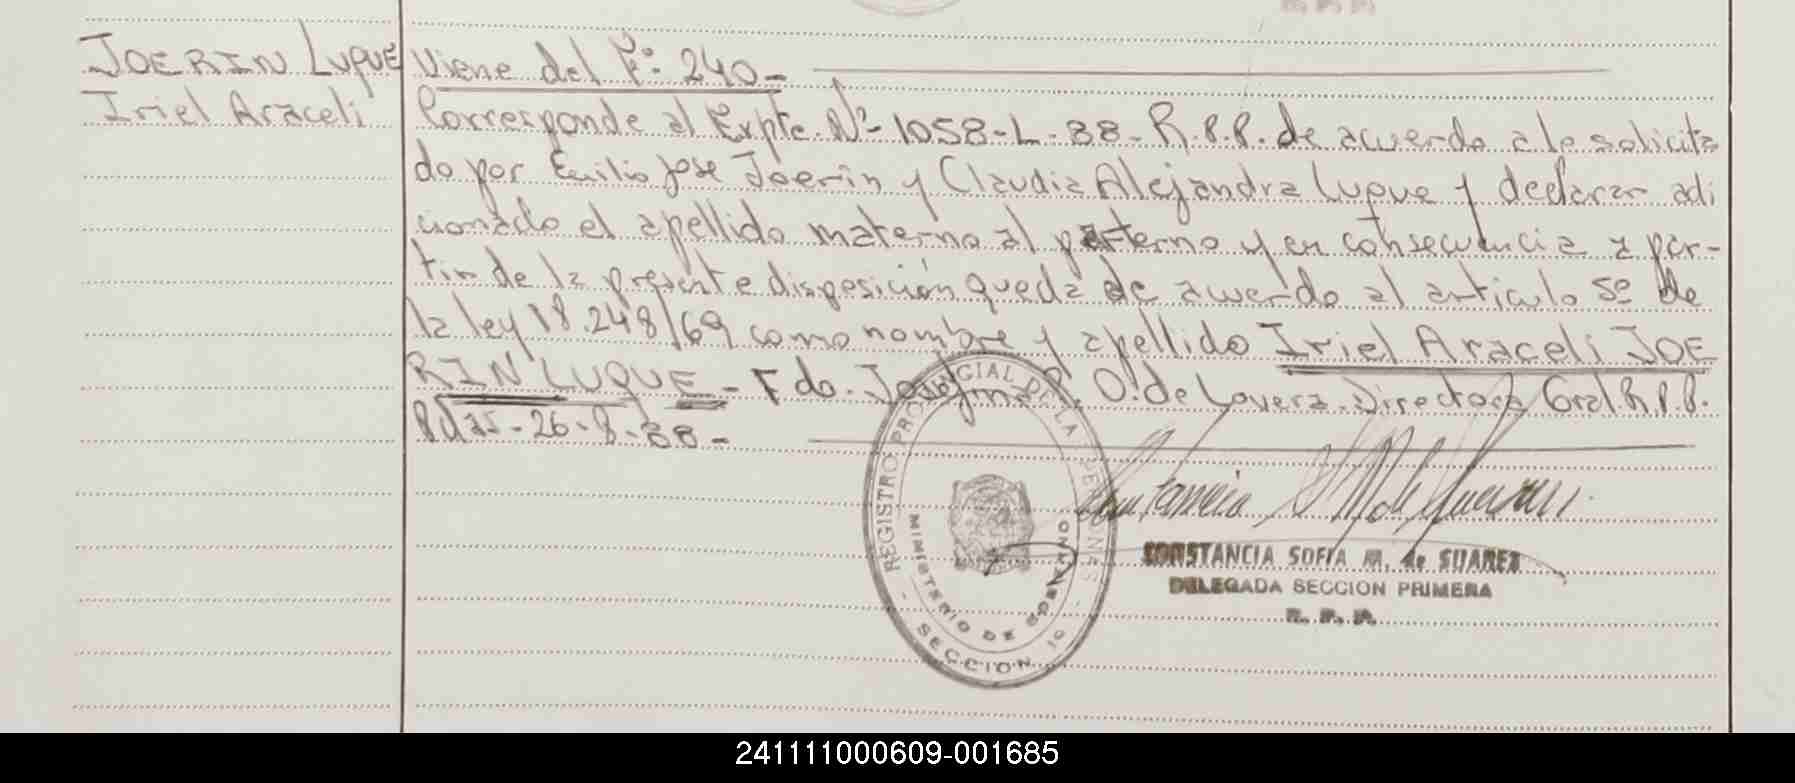 JOERIN LUQUE
Iriel Araceli
Viene del Fº: 240-
Corresponde al Expte. Nº 1058-L-88- R.P.P. de acuerdo a lo solicita
do por Emilio Jose Joerin y Claudia Alejandra Luque y declarar adi
cionado el apellido materno al paterno y en consecuencia a par-
tir de la presente disposición queda de acuerdo al articulo 5º de
la ley 18.248/69 como nombre y apellido Iriel Araceli JOE
RIN LUQUE - Fdo. Josefina O. de Lovera. Directora Gral. R.P.P.
-26-8-88-
REGISTRO PROVINCIAL DE LAS PERSONAS
MINISTERIO DE GOBIERNO
- SECCION 1º -
CONSTANCIA SOFIA M. de SUAREZ
DELEGADA SECCION PRIMERA
R. P. P.
241111000609-001685